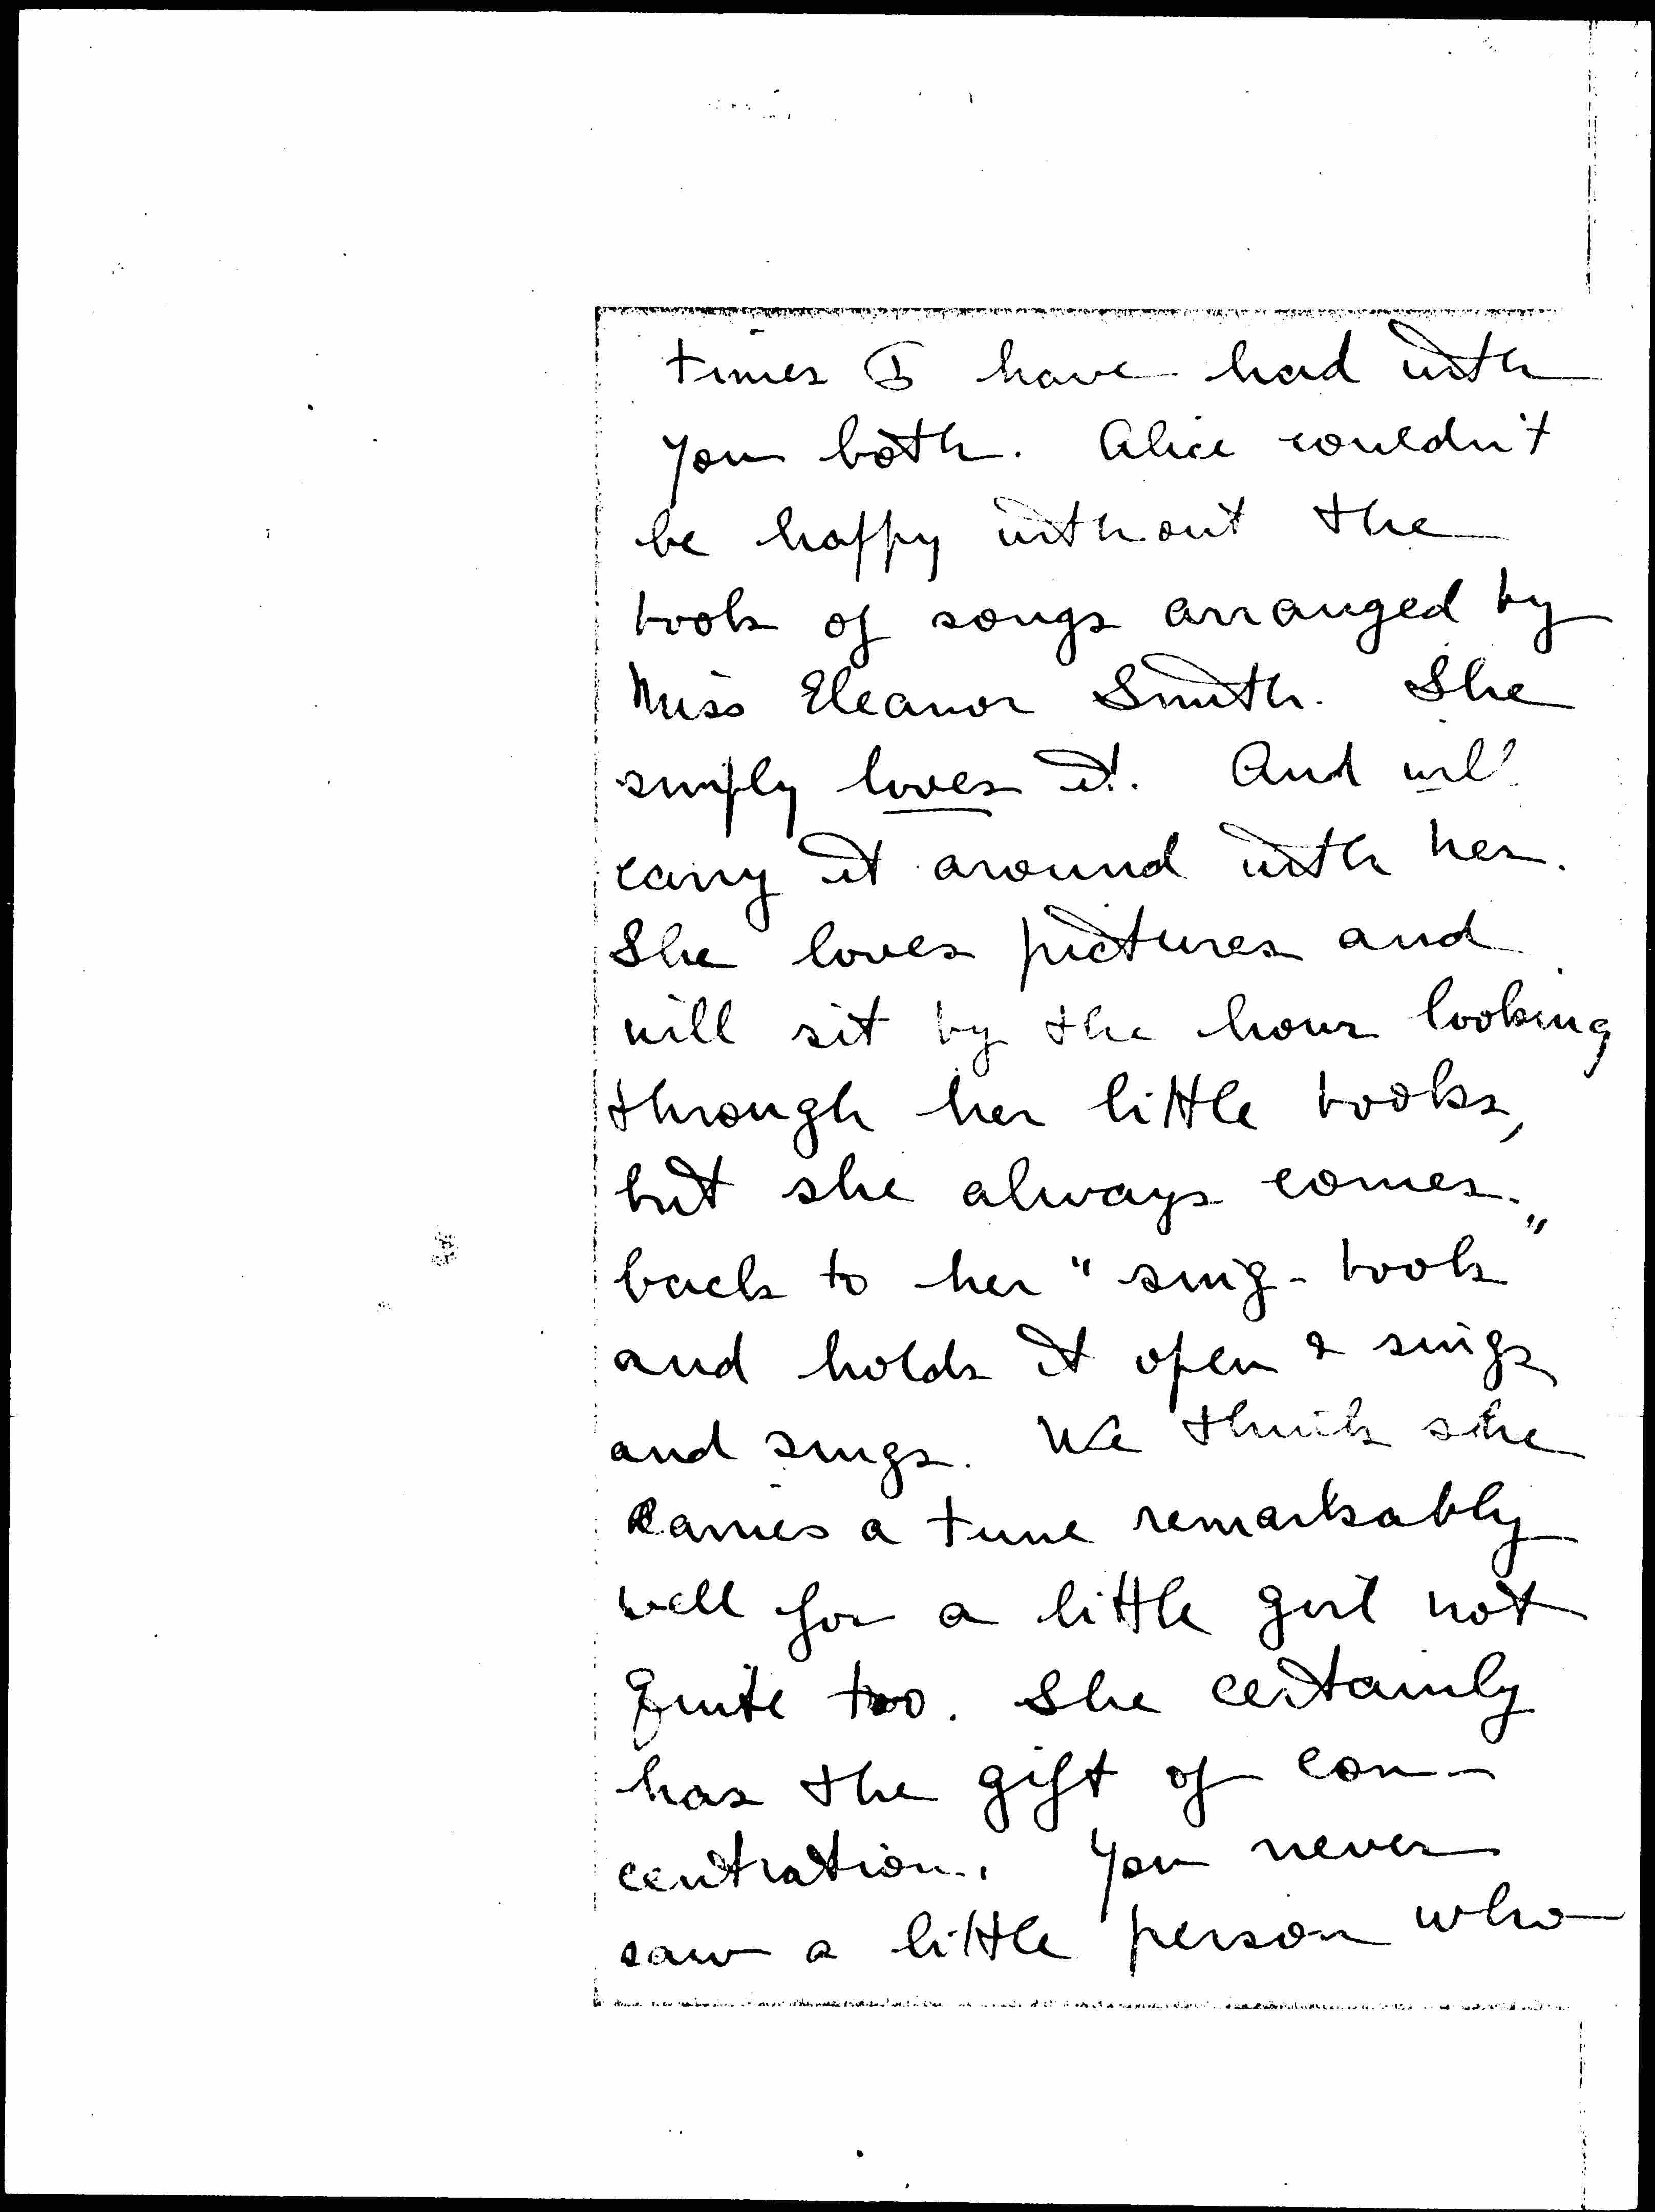 times I have had with
you both. Alice couldn't
be happy without the
book of songs arranged by
Miss Eleanor Smith. She
simply loves it. And will
carry it around with her.
She loves pictures and
will sit by the hour looking
through her little books,
but she always comes
back to her "sing-book"
and holds it open & sings
and sings. We think she
carries a tune remarkably
well for a little girl not
quite two. She certainly
has the gift of con-
centration. You never
saw a little person who